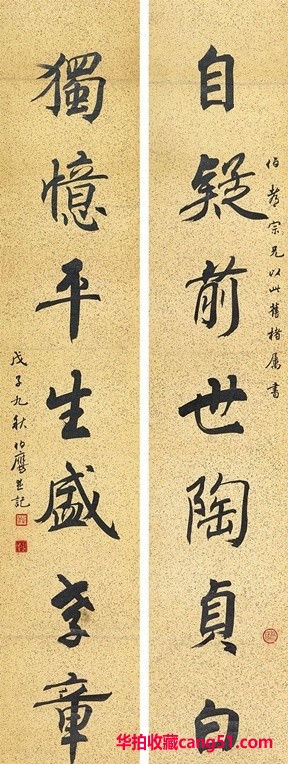 伯宗兄以此舊楮屬書
自疑前世陶貞白
獨憶平生盛孝章
戊子九秋伯鷹並記
华拍收藏cang51.com